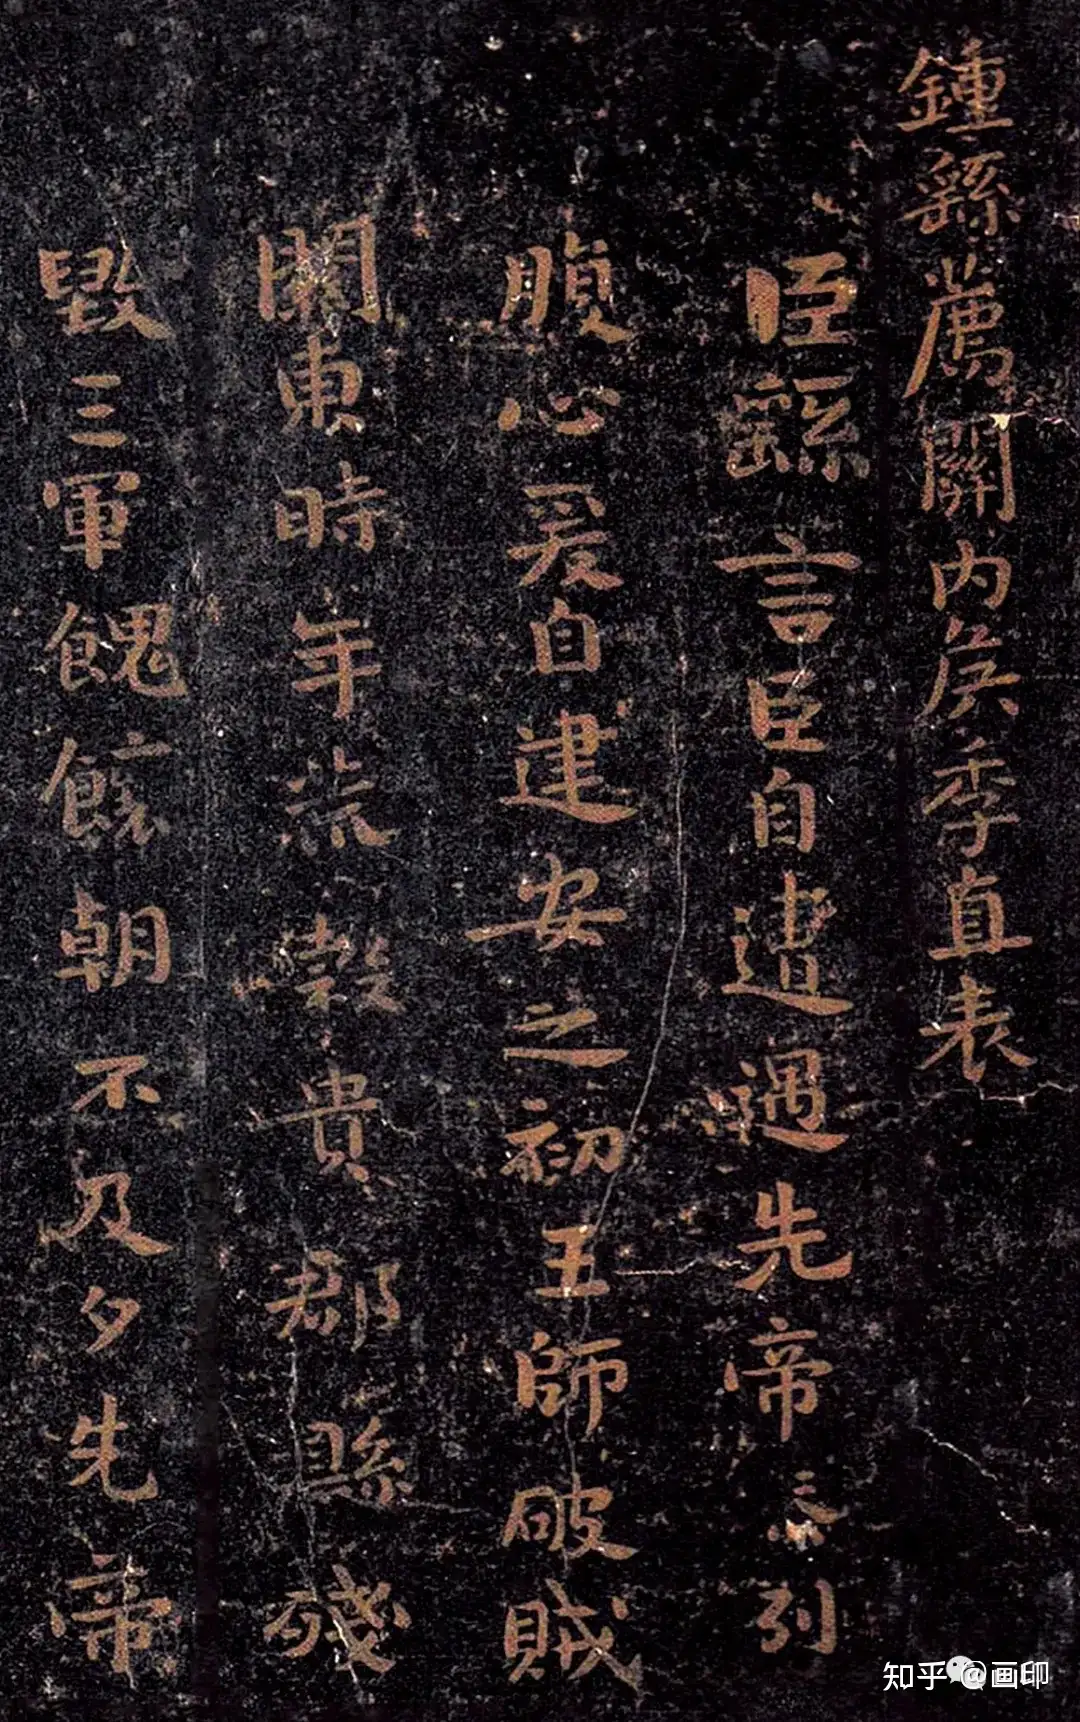 鍾繇薦關內侯季直表
臣繇言臣自遭遇先帝忝列
腹心爰自建安之初王師破賊
關東時年荒穀貴郡縣殘
毀三軍餽饟朝不及夕先帝
知乎 @画印